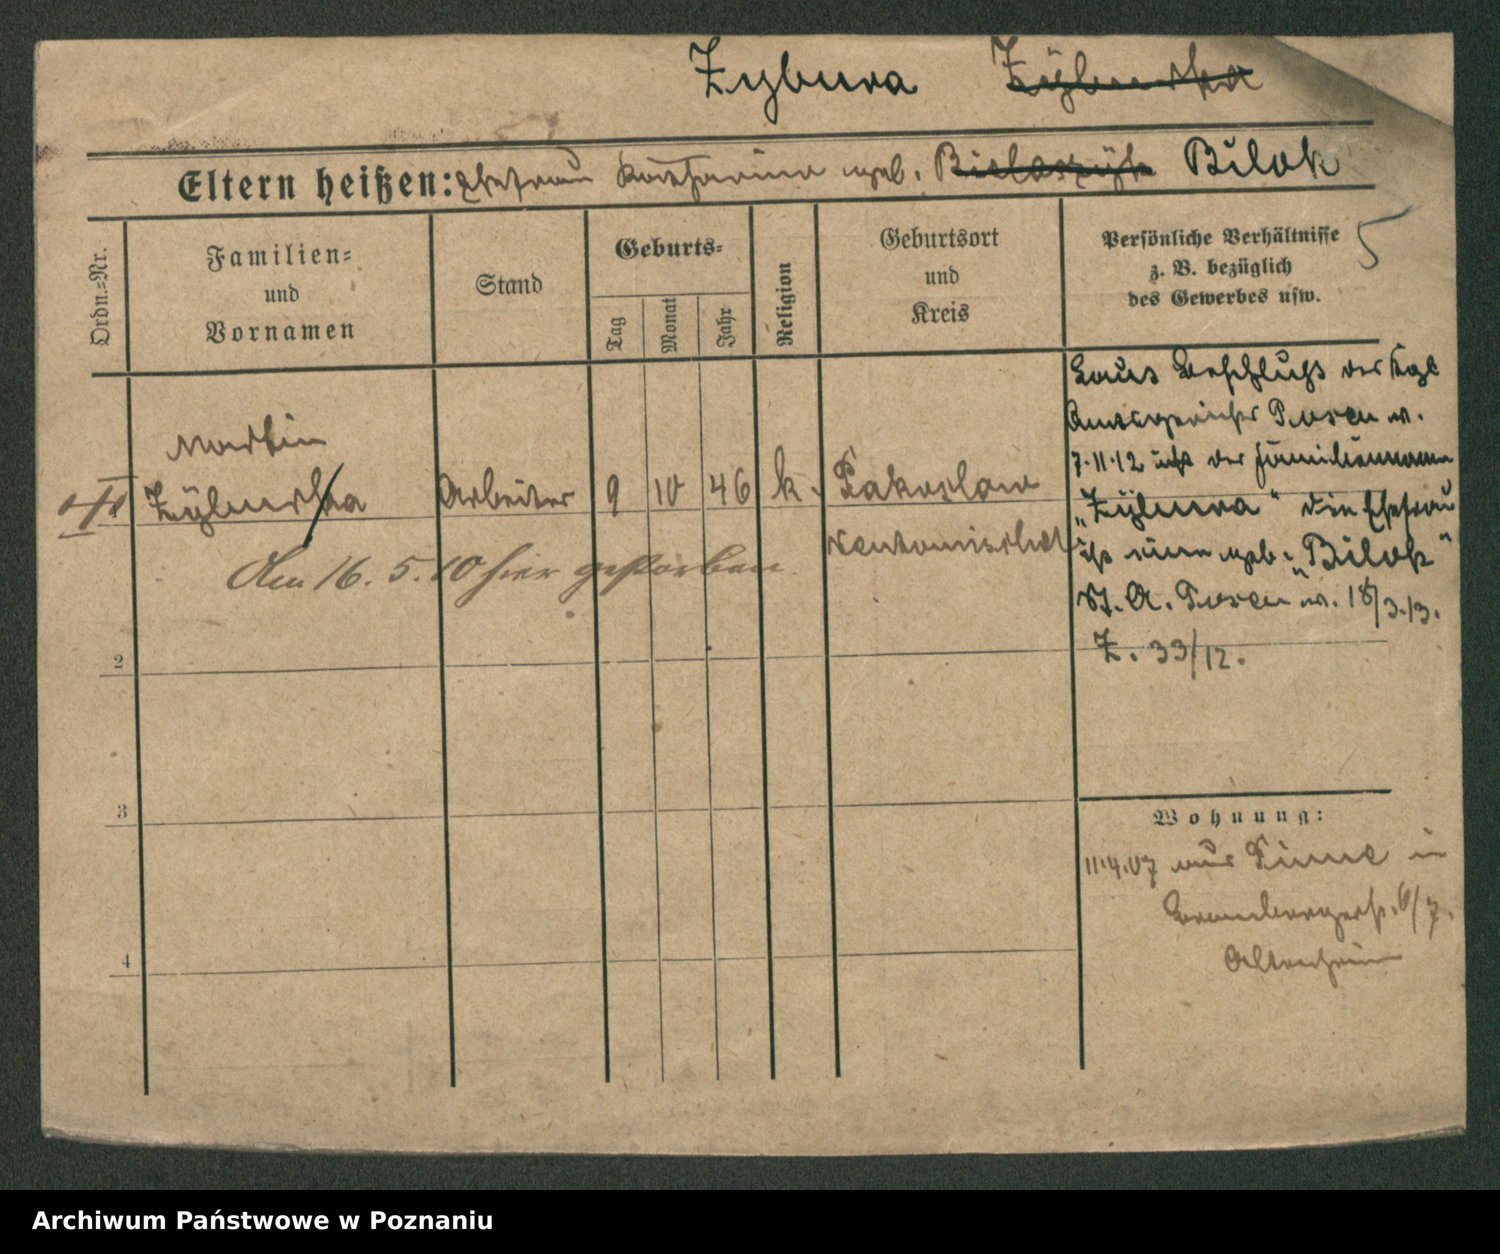 Zybura Zyburska
Eltern heißen: Ehefrau Katharina geb. Bielaszyk Bilok
5
Ordn.-Nr.
Familien-
und
Vornamen
Stand
Geburts-
Tag
Monat
Jahr
Religion
Geburtsort
und
Kreis
Persönliche Verhältnisse
z. B. bezüglich
des Gewerbes usw.
Martin
Zyburska Arbeiter 9 10 46 k. Pakoslaw
Neutomischel
den 16. 5. 10 hier gestorben
Laut Beschluß des Kgl
Amtsgerichts Posen v.
7.11.12 ist der Familienname
„Zybura“ die Ehefrau
ist eine geb. „Bilok“
St. A. Posen v. 18/3.13.
Z. 33/12.
2
3
4
Wohnung:
11.4.07 aus in
Brombergerst. 6/7.
Altenheim
Archiwum Państwowe w Poznaniu